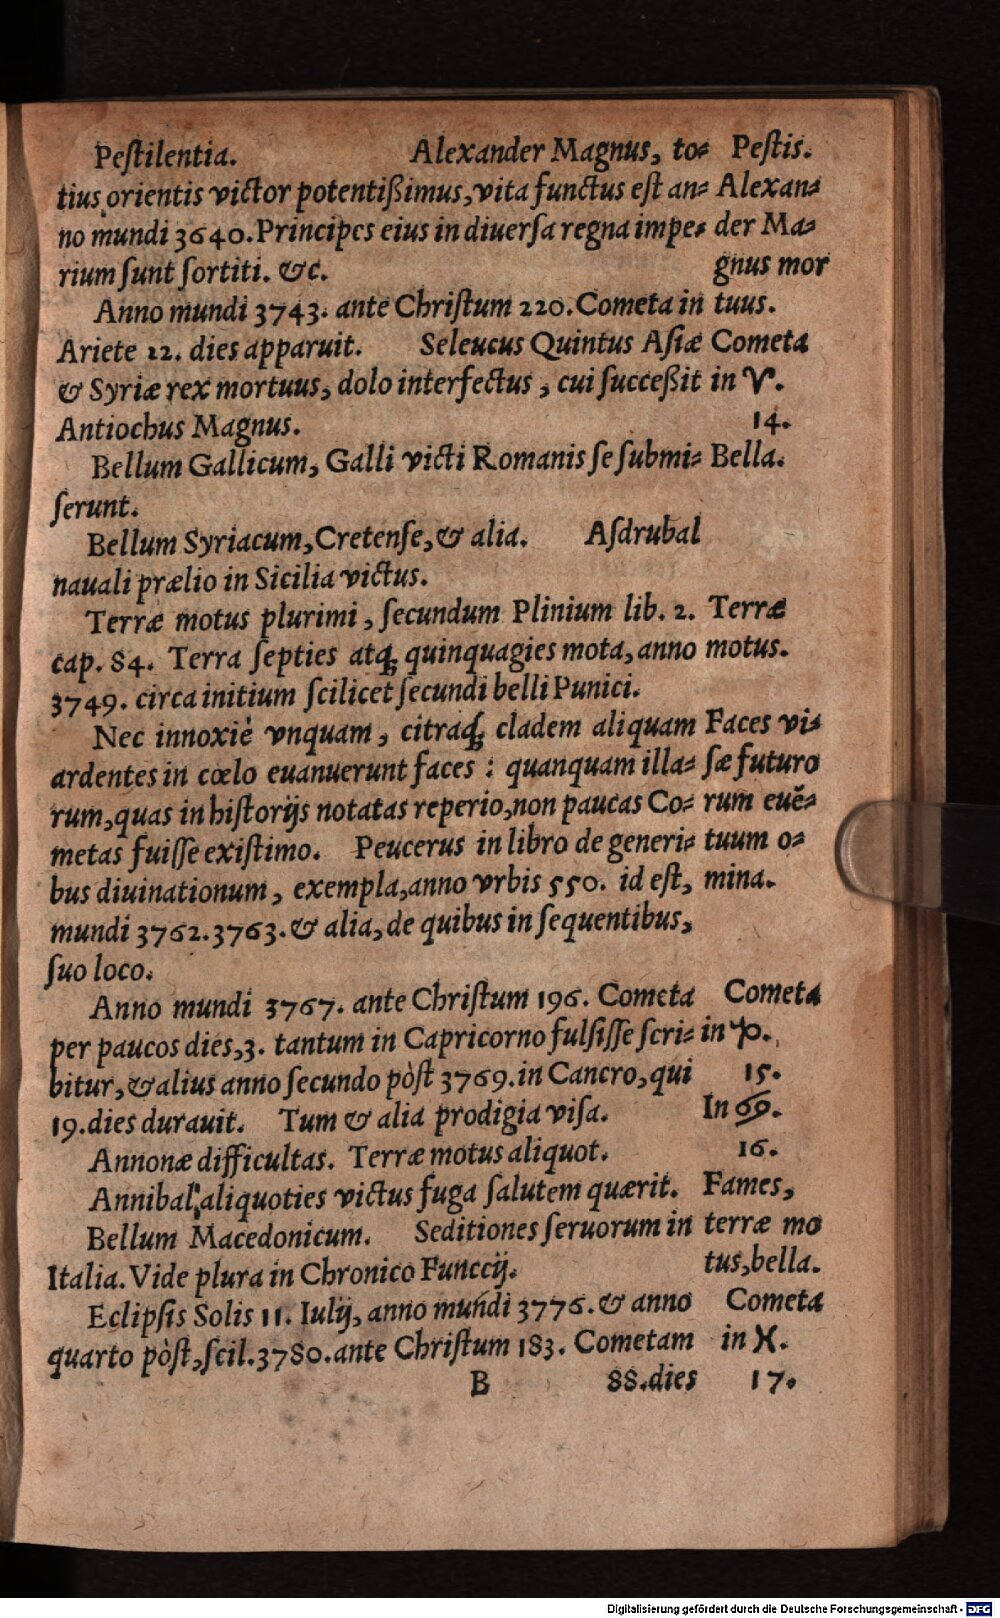 Pestilentia. Alexander Magnus, to⸗ Pestis.
tius orientis victor potentißimus, vita functus est an⸗ Alexan⸗
no mundi 3640. Principes eius in diuersa regna impe⸗ der Ma⸗
rium sunt sortiti. &c. gnus mor
Anno mundi 3743. ante Christum 220. Cometa in tuus.
Ariete 22. dies apparuit. Seleucus Quintus Asiæ Cometa
& Syriæ rex mortuus, dolo interfectus, cui succeßit in ♈.
Antiochus Magnus. 14.
Bellum Gallicum, Galli victi Romanis se submi⸗ Bella.
serunt.
Bellum Syriacum, Cretense, & alia. Asdrubal
nauali prælio in Sicilia victus.
Terræ motus plurimi, secundum Plinium lib. 2. Terræ
cap. 84. Terra septies atq; quinquagies mota, anno motus.
3749. circa initium scilicet secundi belli Punici.
Nec innoxiè vnquam, citraq; cladem aliquam Faces vi⸗
ardentes in cœlo euanuerunt faces : quanquam illa⸗ sæ futuro
rum, quas in historijs notatas reperio, non paucas Co⸗ rum euẽ⸗
metas fuisse existimo. Peucerus in libro de generi⸗ tuum o⸗
bus diuinationum, exempla, anno vrbis 550. id est, mina.
mundi 3762. 3763. & alia, de quibus in sequentibus,
suo loco.
Anno mundi 3767. ante Christum 196. Cometa Cometa
per paucos dies, 3. tantum in Capricorno fulsisse scri⸗ in ♑.
bitur, & alius anno secundo pòst 3769. in Cancro, qui 15.
19. dies durauit. Tum & alia prodigia visa. In ♋.
Annonæ difficultas. Terræ motus aliquot. 16.
Annibal aliquoties victus fuga salutem quærit. Fames,
Bellum Macedonicum. Seditiones seruorum in terræ mo
Italia. Vide plura in Chronico Funccij. tus, bella.
Eclipsis Solis 11. Iulij, anno mundi 3776. & anno Cometa
quarto pòst, scil. 3780. ante Christum 183. Cometam in ♓.
B 88. dies 17.
Digitalisierung gefördert durch die Deutsche Forschungsgemeinschaft - DFG